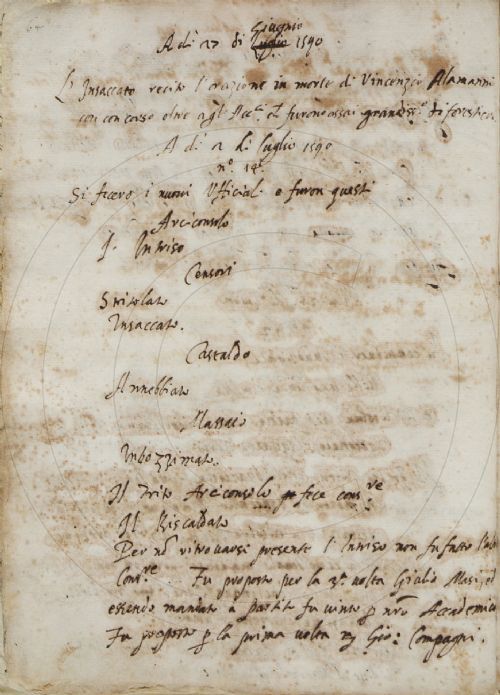 Giugno
A dì 27 di Luglio 1590
L'Insaccato recitò l'orazione in morte di Vincenzo Alamanni
con concorso oltre agl'Acc.ci furono assai grandiss.o di forestieri
A dì 2 di luglio 1590
n.o 14
Si fecero i nuovi Ufficiali e furon questi
Arciconsolo
L'Intriso
Censori
Stritolato
Insaccato.
Castaldo
Annebbiato
Massaio
Inbozzimato.
Il Trito Arciconsolo fece cons.re
Il Riscaldato
Per nō ritrovarsi presente l'Intriso non fu fatto
Cons.re. Fu proposto per la 3.a volta Giulio Masi, et
essendo mandato a partito fu vinto p nr̄o Accademico
Fu proposto p la prima volta Gio: Compagni.